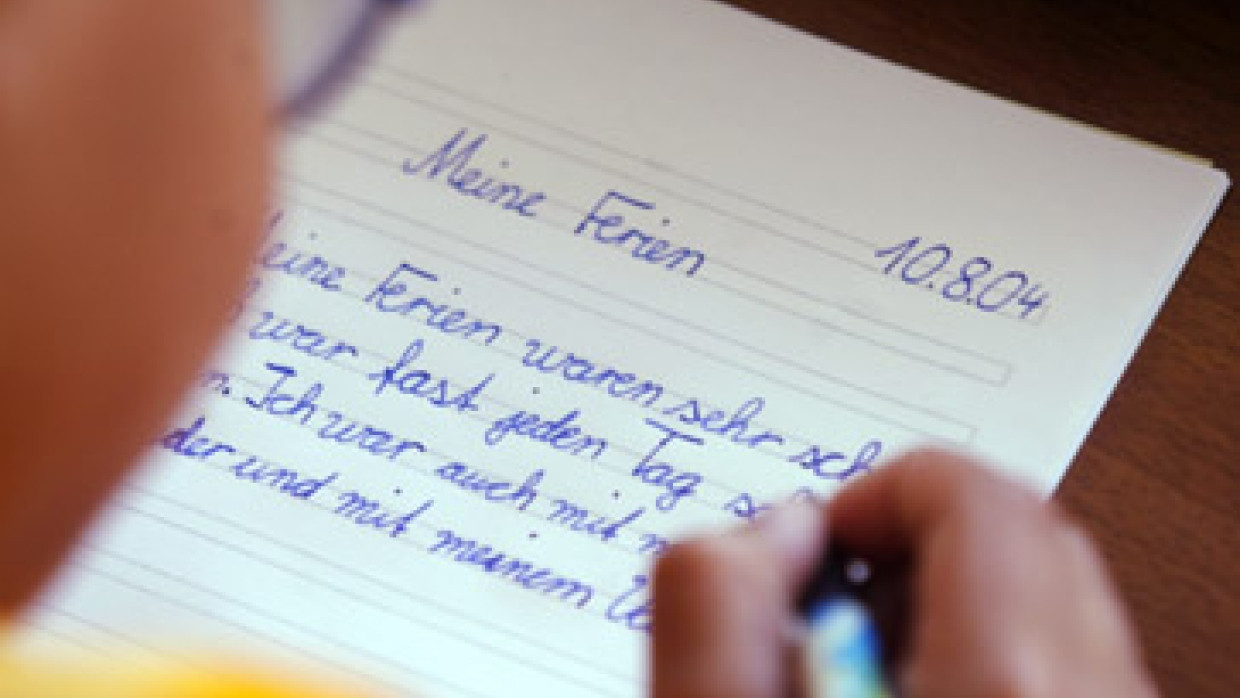 Meine Ferien 10.8.04
eine Ferien waren sehr sch
war fast jeden Tag
n. Ich war auch mit m
der und mit meinem